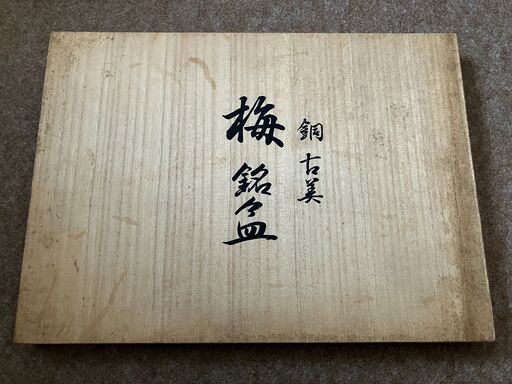 銅 古美
梅 銘盆